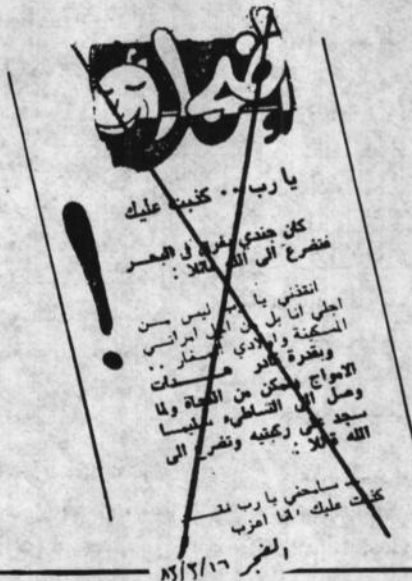 يا رب .. كذبت عليك
!
كان جندي يغرق في البحر
فتضرع الى الله قائلا :
انقذني يا رب ليس من
اجلي انا بل من اجل امراتي
المسكينة واولادي الصغار ..
وبقدرة قادر هدات
الامواج وتمكن من النجاة ولما
وصل الى الشاطىء سليما
سجد على ركبتيه وتضرع الى
الله قائلا :
— سامحني يا رب فقد
كذبت عليك انا اعزب
الفجر ٨٣/٣/١٦